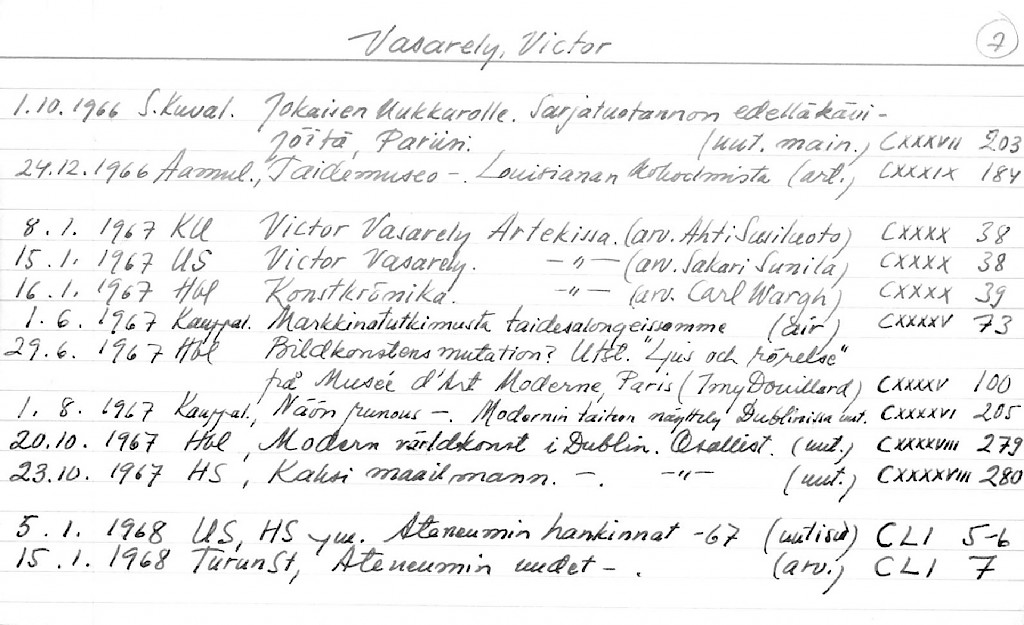 Vasarely, Victor 7
1.10.1966 S.Kuval. Jokaisen kukkarolle. Sarjatuotannon edelläkävi-
jöitä, Pariisi. (uut. main.) CXXXVII 203
24.12.1966 Aamul., Taidemuseo -. Louisianan kokoelmista (art.) CXXXIX 184
8.1. 1967 KU Victor Vasarely Artekissa. (arv. Ahti Susiluoto) CXXXX 38
15.1. 1967 US Victor Vasarely. -"- (arv. Sakari Sunila) CXXXX 38
16.1. 1967 Hbl Konstkrönika. -"- (arv. Carl Wargh) CXXXX 39
1.6. 1967 Kauppal. Markkinatutkimusta taidesalongeissamme (air) CXXXXV 73
29.6. 1967 Hbl Bildkonstens mutation? Utst. "Ljus och rörelse"
på Museé d'Art Moderne, Paris (Imy Douillard) CXXXXV 100
1.8. 1967 Kauppal., Näön runous -. Modernin taiteen näyttely Dublinissa uut. CXXXXVI 205
20.10. 1967 Hbl, Modern världkonst i Dublin. Osallist. (uut.) CXXXXVIII 279
23.10. 1967 HS, Kaksi maailmann. -. -"- (uut.) CXXXXVIII 280
5.1. 1968 US, HS ym. Ateneumin hankinnat -67 (uutisia) CLI 5-6
15.1. 1968 TurunSt, Ateneumin uudet -. (arv.) CLI 7